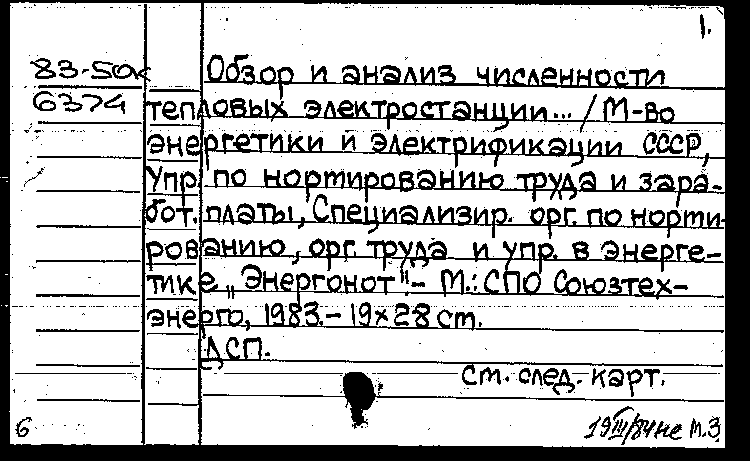 1.
83-50к Обзор и анализ численности
6374 тепловых электростанции... / М-во
энергетики и электрификации СССР,
Упр. по нортированию труда и зара-
бот. платы, Специализир. орг. по норти-
рованию, орг. труда и упр. в энерге-
тике „Энергонот".- М.: СПО Союзтех-
энерго, 1983.- 19×28 ст.
ДСП.
Ст. след. карт.
6 19III/84 не М.З.